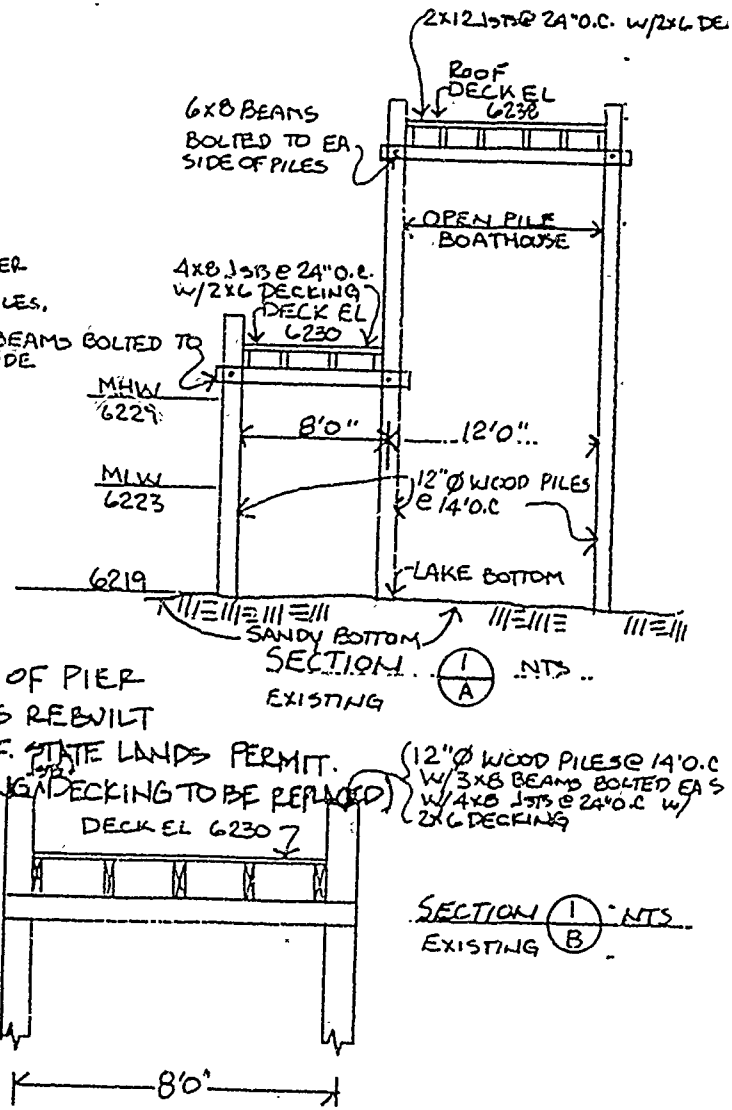 2X12 JSTS @ 24"O.C. W/2X6 DE
ROOF
DECK EL
6238
6X8 BEAMS
BOLTED TO EA
SIDE OF PILES
OPEN PILE
BOATHOUSE
ER
LES.
BEAMS BOLTED TO
DE
4X8 JSTS @ 24"O.C.
W/2X6 DECKING
DECK EL
6230
MHW
6229
8'0"
12'0"
MLW
6223
12"Ø WOOD PILES
@ 14'O.C
6219
LAKE BOTTOM
SANDY BOTTOM
SECTION 1 NTS
A
EXISTING
OF PIER
S REBUILT
STATE LANDS PERMIT.
JSTS
DECKING TO BE REPLACED
12"Ø WOOD PILES @ 14'O.C
W/3X8 BEAMS BOLTED EA S
W/4X8 JSTS @ 24"O.C W/
2X6 DECKING
DECK EL 6230
SECTION 1 NTS
B
EXISTING
8'0"